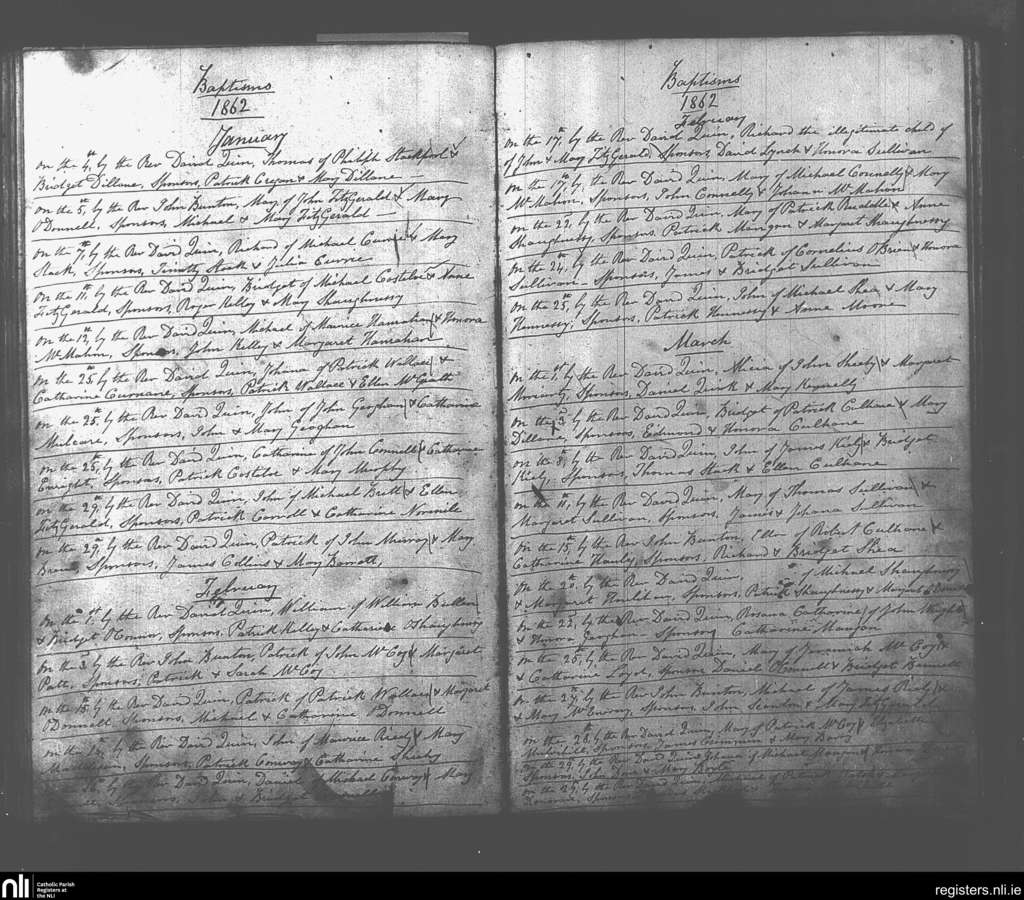 Baptisms
1862
January
On the 4th, by the Rev David Quin, Thomas of Philiph Stackpool &
Bridget Dillane, Sponsors, Patrick Cregan & May Dillane
On the 5th, by the Rev John Bunton, Mary of John FitzGerald & Mary
O'Donnell, Sponsors, Michael & Mary FitzGerald
On the 7th, by the Rev David Quin, Richard of Michael & Mary
Stack, Sponsors, Timothy Stack & Julia
On the 11th, by the Rev David Quin, Bridget of Michael Costeloe & Anne
FitzGerald, Sponsors, Roger Kelly & Mary Shaughnessy
On the 12th, by the Rev David Quin, Michael of Maurice Hanrahan & Honora
McMahon, Sponsors, John Kelly & Margaret Hanrahan
On the 25th by the Rev David Quin, Johana of Patrick Wallace &
Catharine Curnane, Sponsors, Patrick Wallace & Ellen
On the 25th, by the Rev David Quin, John of John Geoghan & Catharine
Mulcare, Sponsors, John & Mary Geoghan
On the 25th, by the Rev David Quin, Catharine of John Connell & Catharine
Enright, Sponsors, Patrick Costeloe & Mary Murphy
On the 29th, by the Rev David Quin, John of Michael & Ellen
FitzGerald, Sponsors, Patrick Connell & Catharine
On the 29th, by the Rev David Quin, Patrick of John Murray & Mary
Sponsors, James Collins & Mary Barrett,
February
On the 1st, by the Rev David Quin, William of William
& Bridget O'Connor, Sponsors, Patrick Kelly & Catharine O'Shaughnessy
On the 3rd by the Rev John Bunton, Patrick of John McCoy & Margaret
Patt, Sponsors, Patrick & Sarah McCoy
On the 15th, by the Rev David Quin, Patrick of Patrick Wallace & Margaret
O'Donnell, Sponsors, Michael & Catharine O'Donnell
On the by the Rev David Quin, John of Maurice & Mary
Sponsors, Patrick Conway & Catharine Sheehy
16th, by the Rev David Quin, Daniel of Michael Conway & Mary
Sponsors, John & Bridget
Baptisms
1862
February
On the 17th, by the Rev David Quin, Richard the illegitimate child of
of John & Mary FitzGerald, Sponsors, David Lynch & Honora Sullivan
On the 17th, by the Rev David Quin, Mary of Michael Connelly & Mary
McMahon, Sponsors, John Connelly & Johana McMahon
On the 22nd, by the Rev David Quin, Mary of Patrick Ruddle & Anne
Shaughnessy, Sponsors, Patrick Mangan & Margaret Shaughnessy
On the 24th, by the Rev David Quin, Patrick of Cornelius O'Brien & Honora
Sullivan Sponsors, James & Bridget Sullivan
On the 25th, by the Rev David Quin, John of Michael Shea & Mary
Hennessy, Sponsors, Patrick Hennessy & Anne Moore
March
On the 1st, by the Rev David Quin, of John Sheehy & Margaret
Moriarty, Sponsors, Daniel Quirk & Mary
On the 3rd by the Rev David Quin, Bridget of Patrick Culhane & Mary
Dillane, Sponsors, Edmond & Honora Culhane
On the 8th, by the Rev David Quin, John of James Kiely & Bridget
Kiely, Sponsors, Thomas Stack & Ellen Culhane
On the 11th, by the Rev David Quin, Mary of Thomas Sullivan &
Margaret Sullivan, Sponsors, James & Johana Sullivan
On the 15th, by the Rev John Bunton, Ellen of Robert Culhane &
Catharine Hanly, Sponsors, Richard & Bridget Shea
On the 20th, by the Rev David Quin, of Michael Shaughnessy
& Margaret Houlihan, Sponsors, Patrick Shaughnessy & Margaret
On the 22nd, by the Rev David Quin, Rosana Catharine of John Wright
& Honora Geoghan Sponsors Catharine Mangan
On the 25th, by the Rev David Quin, Mary of Jeremiah McCoy &
& Catharine Loyd, Sponsors Daniel O'Connell & Bridget
On the by the Rev John Bunton, Michael of James &
& Mary Sponsors, John Scanlon & Mary FitzGerald
On the 28th, by the Rev David Quin, Mary of Patrick McCoy & Elizabeth
Sponsors, James & Mary
On the 29th by the Rev David Quin Johana of Michael
Sponsors, John & Mary
On the 29th, by the Rev David Quin, Michael of Patrick
Sponsors
nli
Catholic Parish
Registers at
the NLI
registers.nli.ie